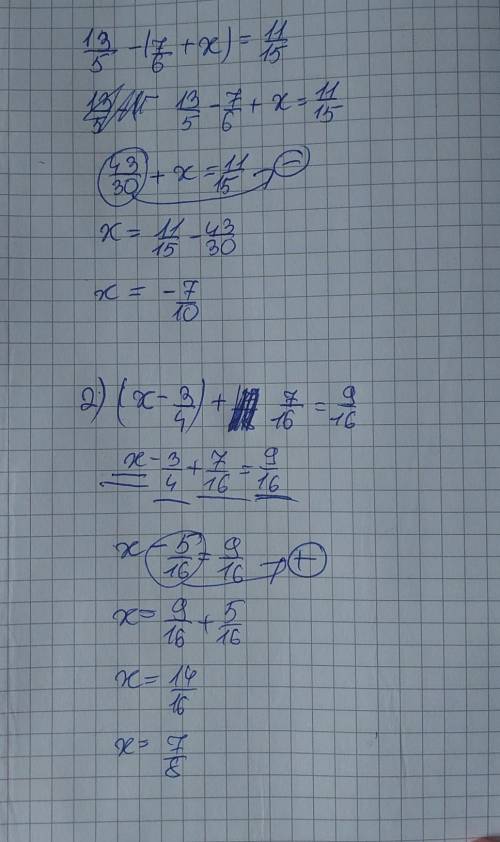 13/5 - (7/6 + x) = 11/15
13/5 - 7/6 + x = 11/15
43/30 + x = 11/15 -
x = 11/15 - 43/30
x = -7/10
2) (x - 3/4) + 7/16 = 9/16
x - 3/4 + 7/16 = 9/16
x - 5/16 = 9/16 +
x = 9/16 + 5/16
x = 14/16
x = 7/8